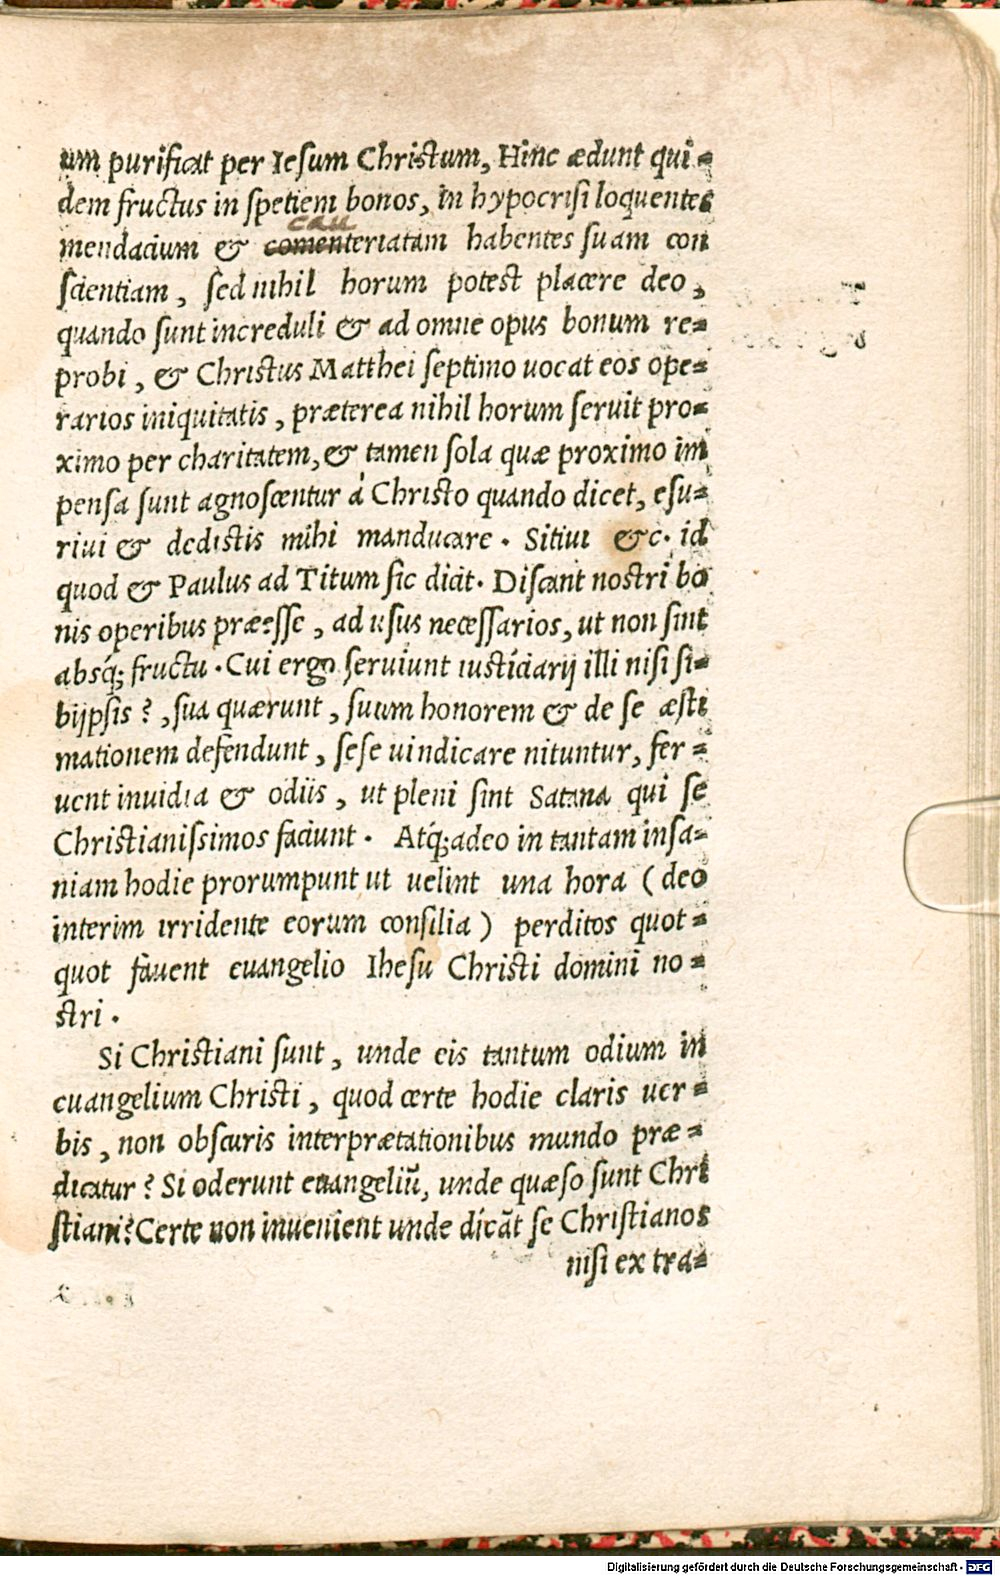 um purificat per Iesum Christum, Hinc ædunt qui-
dem fructus in spetiem bonos, in hypocrisi loquentes
cau
mendacium & comenteriatam habentes suam con
scientiam, sed nihil horum potest placere deo,
quando sunt increduli & ad omne opus bonum re-
probi, & Christus Matthei septimo uocat eos ope-
rarios iniquitatis, præterea nihil horum seruit pro-
ximo per charitatem, & tamen sola quæ proximo im
pensa sunt agnoscentur á Christo quando dicet, esu-
riui & dedistis mihi manducare. Sitiui &c. id
quod & Paulus ad Titum sic dicit. Discant nostri bo
nis operibus præesse, ad usus necessarios, ut non sint
absq́; fructu. Cui ergo seruiunt iusticiarij illi nisi si-
bijpsis?, sua quærunt, suum honorem & de se æsti
mationem defendunt, sese uindicare nituntur, fer-
uent inuidia & odiis, ut pleni sint Satana qui se
Christianissimos faciunt. Atq́;adeo in tantam insa-
niam hodie prorumpunt ut uelint una hora (deo
interim irridente eorum consilia) perditos quot-
quot fauent euangelio Ihesu Christi domini no-
stri.
Si Christiani sunt, unde eis tantum odium in
euangelium Christi, quod certe hodie claris uer-
bis, non obscuris interprætationibus mundo præ-
dicatur? Si oderunt euangeliū, unde quæso sunt Chri
stiani? Certe non inuenient unde dicāt se Christianos
nisi ex tra-
Digitalisierung gefördert durch die Deutsche Forschungsgemeinschaft - DFG